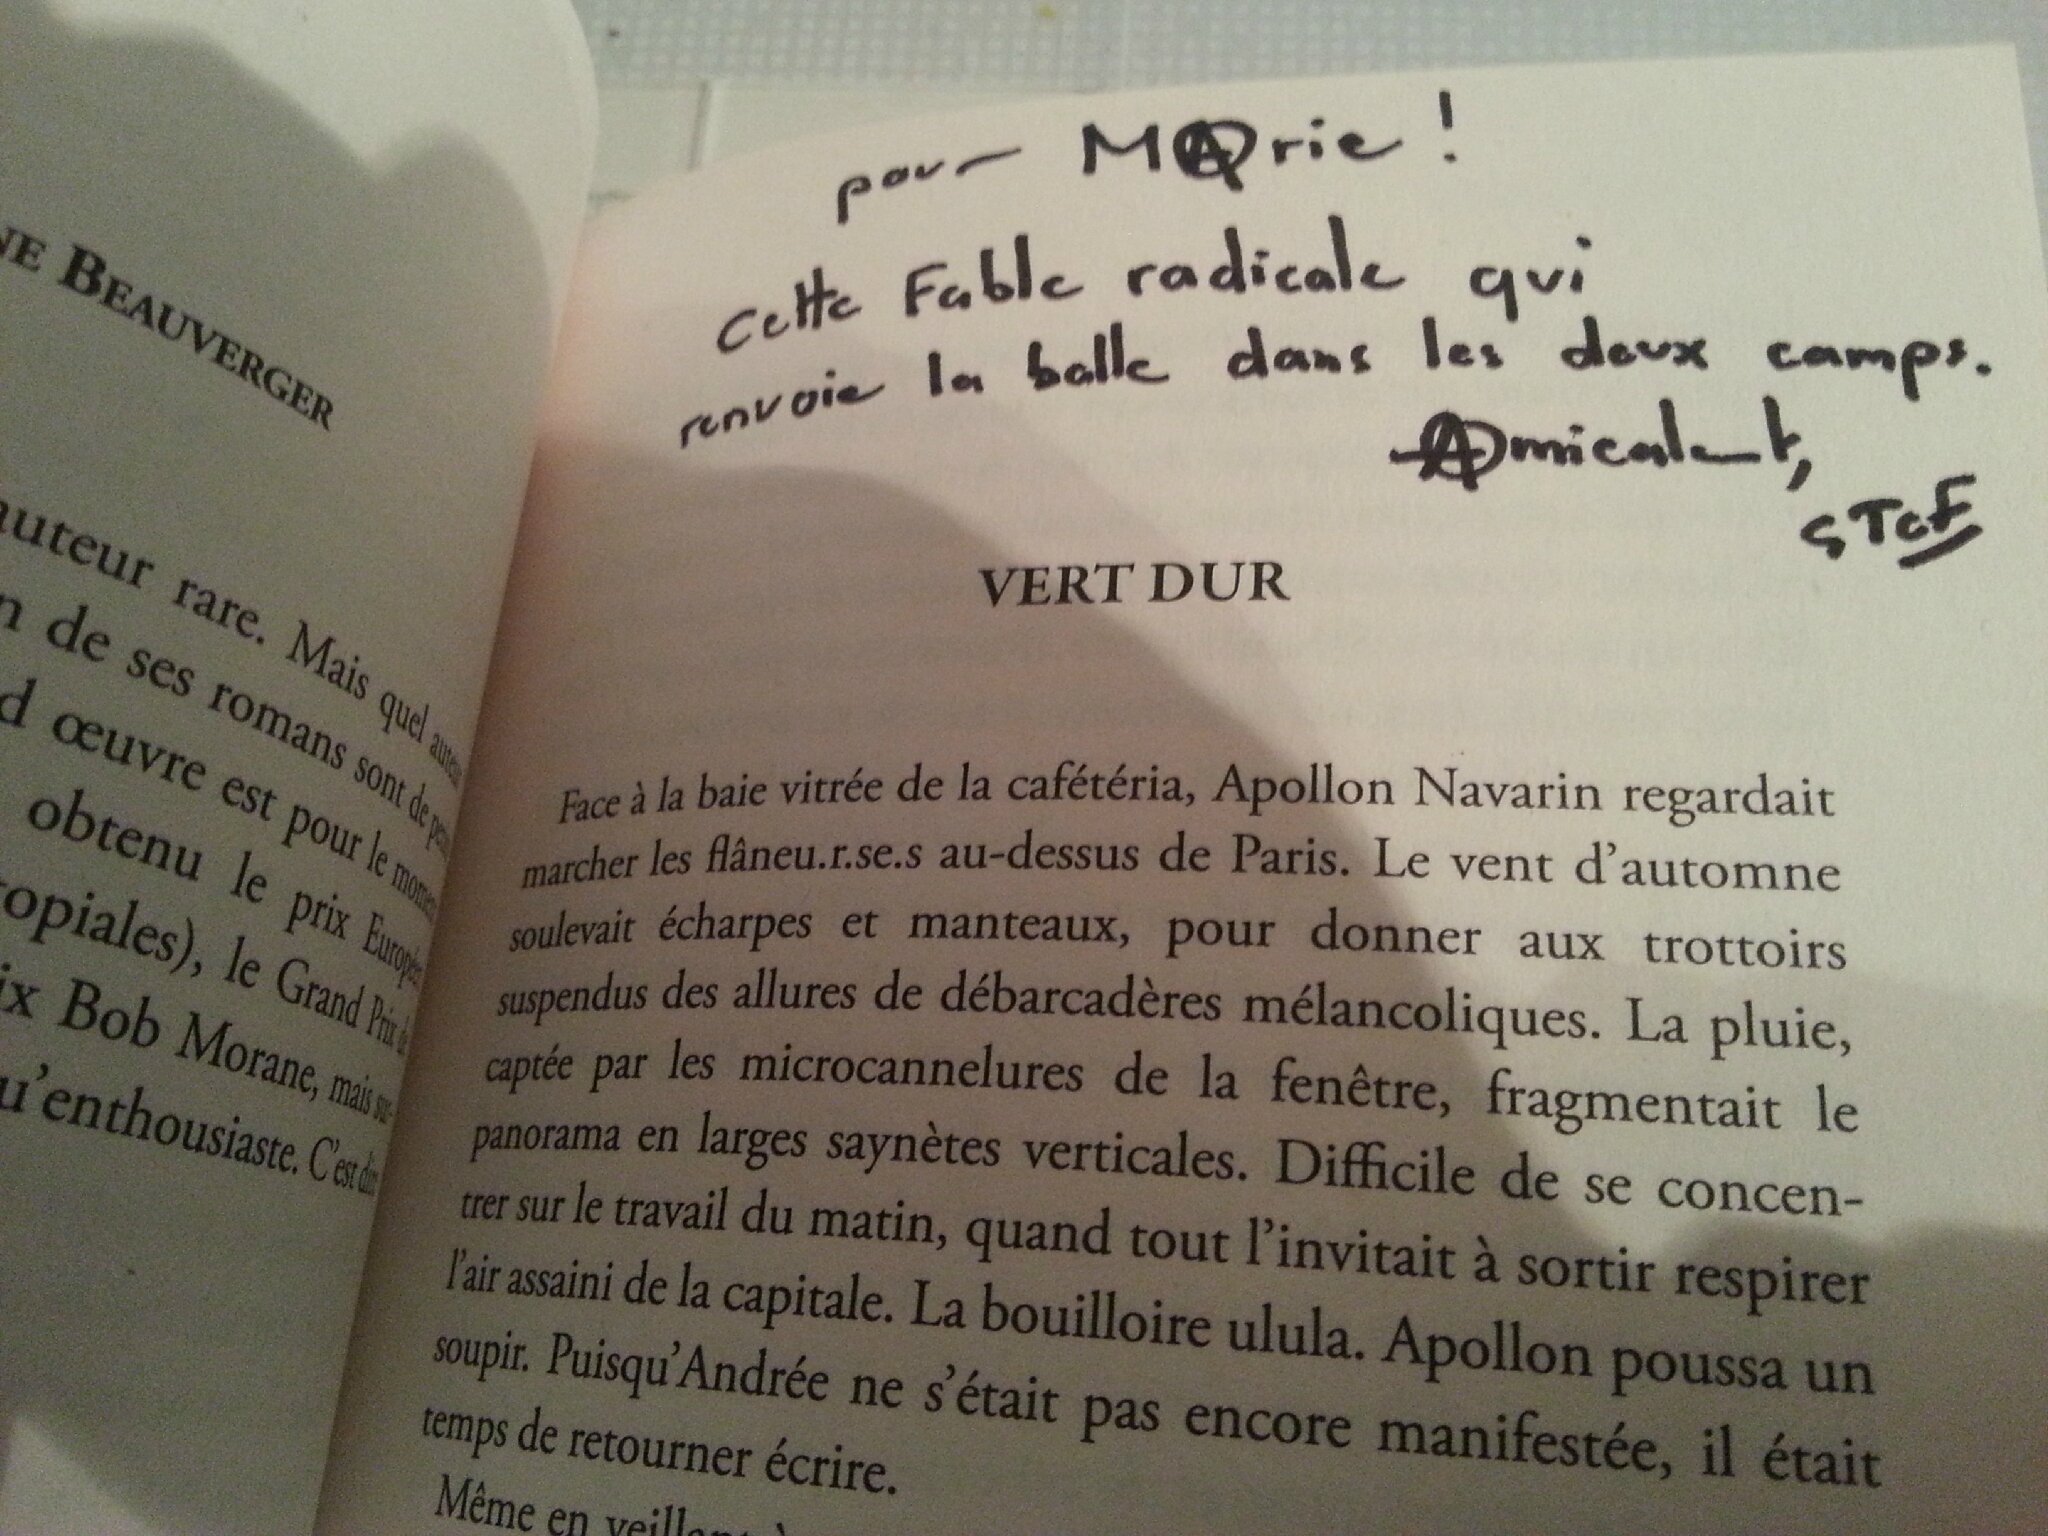 NE BEAUVERGER
auteur rare. Mais quel auteur
n de ses romans sont de
d œuvre est pour le momen
obtenu le prix Européen
topiales), le Grand Prix de
ix Bob Morane, mais su-
u'enthousiaste. C'est dire
pour MArie !
Cette Fable radicale qui
renvoie la balle dans les deux camps.
Amicalement,
STéF
VERT DUR
Face à la baie vitrée de la cafétéria, Apollon Navarin regardait
marcher les flâneu.r.se.s au-dessus de Paris. Le vent d'automne
soulevait écharpes et manteaux, pour donner aux trottoirs
suspendus des allures de débarcadères mélancoliques. La pluie,
captée par les microcannelures de la fenêtre, fragmentait le
panorama en larges saynètes verticales. Difficile de se concen-
trer sur le travail du matin, quand tout l'invitait à sortir respirer
l'air assaini de la capitale. La bouilloire ulula. Apollon poussa un
soupir. Puisqu'Andrée ne s'était pas encore manifestée, il était
temps de retourner écrire.
Même en